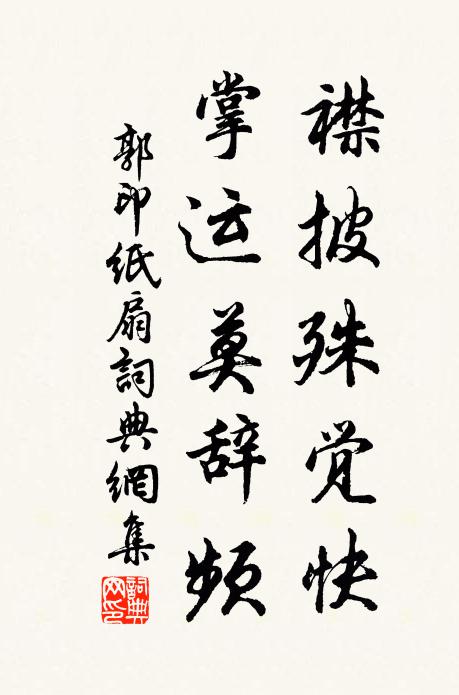 襟披殊觉快
掌运莫辞频
郭印纸扇詞典網集
詞典网印